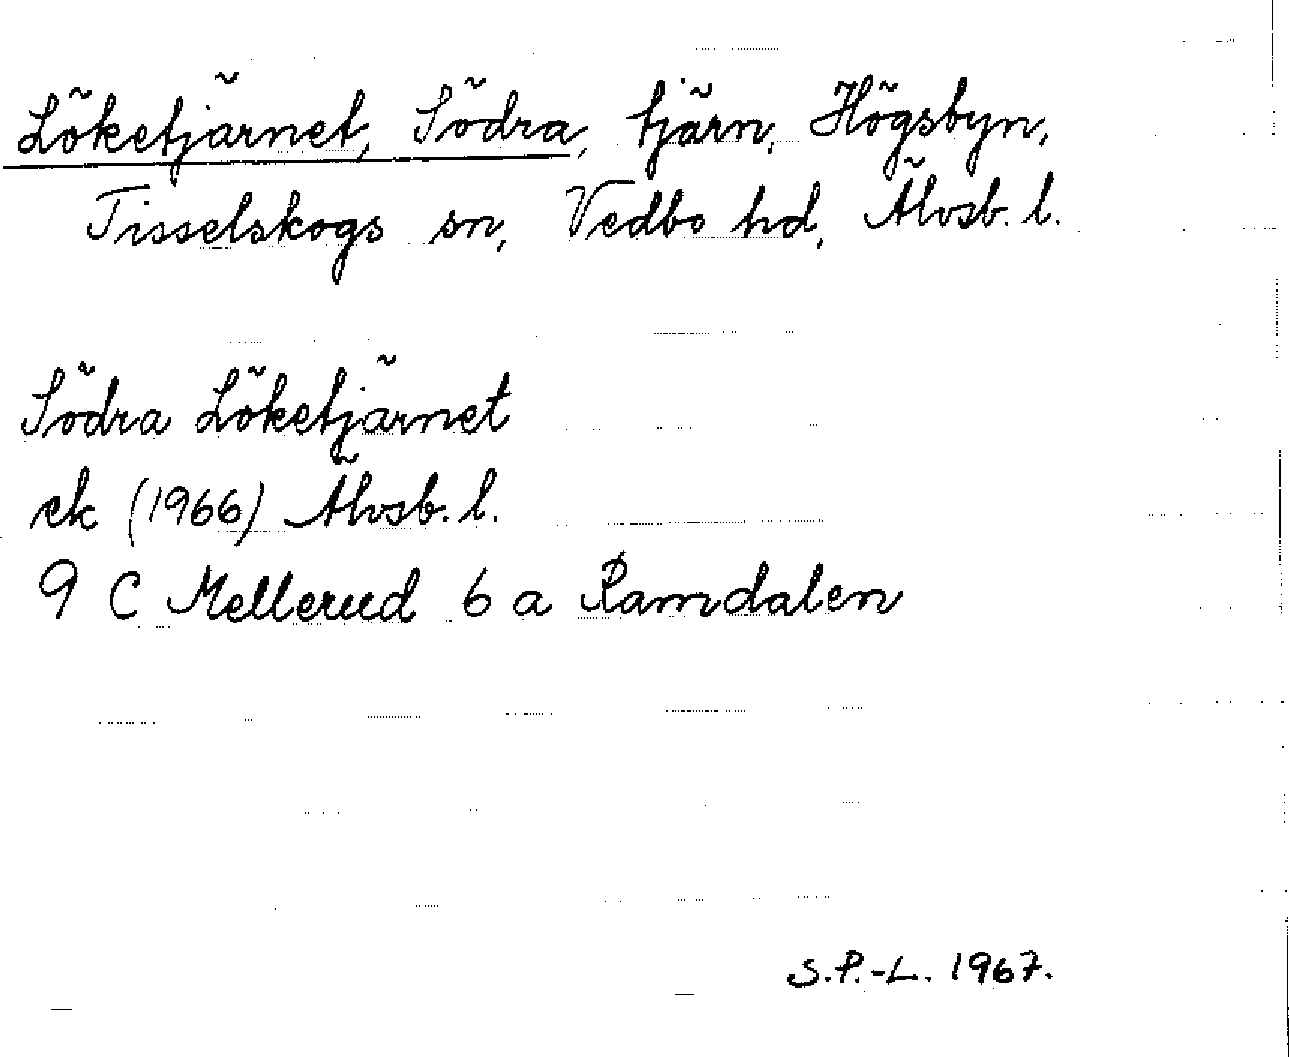 Löketjärnet, Södra, tjärn, Högsbyn,
Tisselskogs sn, Vedbo hd, Älvsb. l.
Södra Löketjärnet
ek (1966) Älvsb. l.
9 C Mellerud 6 a Ramdalen
S.P.-L. 1967.